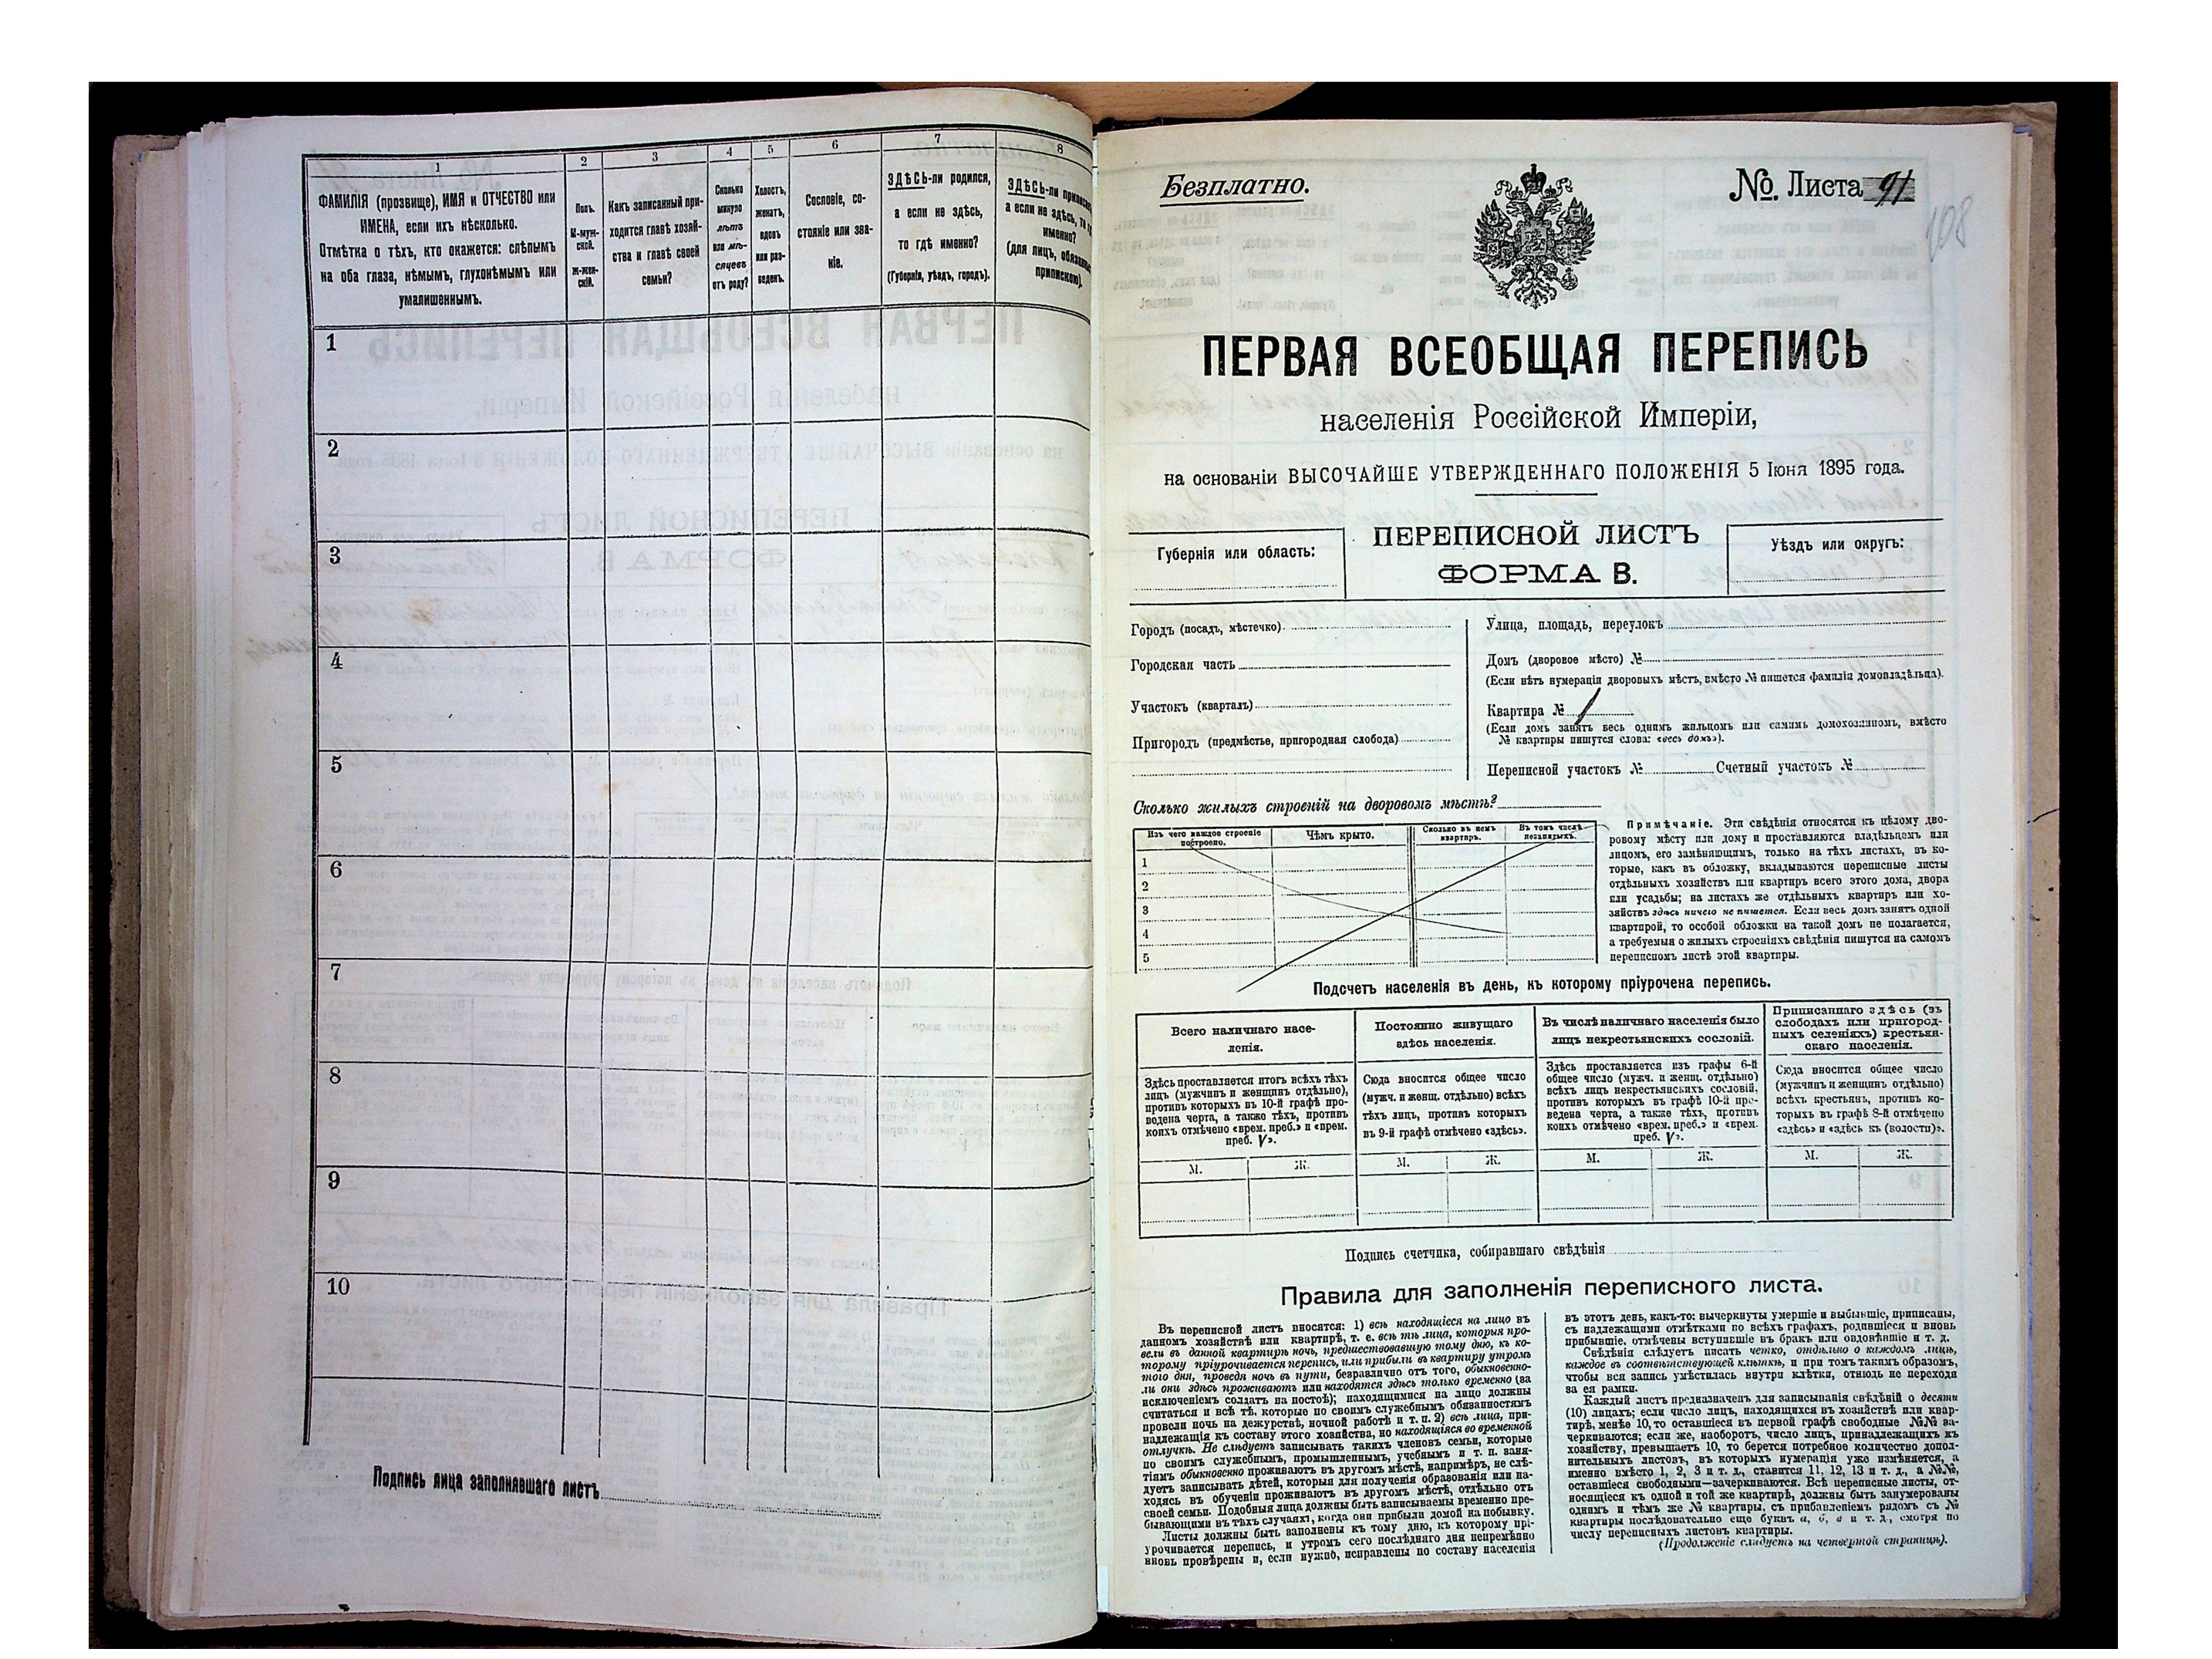 1
2
3
4
5
6
7
8
ФАМИЛІЯ (прозвище), ИМЯ и ОТЧЕСТВО или
ИМЕНА, если ихъ нѣсколько.
Отмѣтка о тѣхъ, кто окажется: слѣпымъ
на оба глаза, нѣмымъ, глухонѣмымъ или
умалишеннымъ.
Полъ.
М-муж-
ской.
ж-жен-
скій.
Какъ записанный при-
ходится главѣ хозяй-
ства и главѣ своей
семьи?
Сколько
минуло
лѣтъ
или мѣ-
сяцевъ
отъ роду?
Холостъ,
женатъ,
вдовъ
или раз-
веденъ.
Сословіе, со-
стояніе или зва-
ніе.
ЗДѢСЬ-ли родился,
а если не здѣсь,
то гдѣ именно?
(Губернія, уѣздъ, городъ).
ЗДѢСЬ-ли
а если не здѣсь, то
именно?
(для лицъ,
припискою).
1
2
3
4
5
6
7
8
9
10
Подпись лица заполнявшаго листъ
Безплатно.
№ Листа 91
108
ПЕРВАЯ ВСЕОБЩАЯ ПЕРЕПИСЬ
населенія Россійской Имперіи,
на основаніи ВЫСОЧАЙШЕ УТВЕРЖДЕННАГО ПОЛОЖЕНІЯ 5 Іюня 1895 года.
Губернія или область:
ПЕРЕПИСНОЙ ЛИСТЪ
ФОРМА В.
Уѣздъ или округъ:
Городъ (посадъ, мѣстечко)
Городская часть
Участокъ (кварталъ)
Пригородъ (предмѣстье, пригородная слобода)
Улица, площадь, переулокъ
Домъ (дворовое мѣсто) №
(Если нѣтъ нумераціи дворовыхъ мѣстъ, вмѣсто № пишется фамилія домовладѣльца).
Квартира № 1
(Если домъ занятъ весь однимъ жильцомъ или самимъ домохозяиномъ, вмѣсто
№ квартиры пишутся слова: «весь домъ»).
Переписной участокъ № Счетный участокъ №
Сколько жилыхъ строеній на дворовомъ мѣстѣ?
Изъ чего каждое строеніе
построено.
Чѣмъ крыто.
Сколько въ немъ
квартиръ.
Въ томъ числѣ
незанятыхъ.
1
2
3
4
5
Примѣчаніе. Эти свѣдѣнія относятся къ цѣлому дво-
ровому мѣсту или дому и проставляются владѣльцемъ или
лицомъ, его замѣняющимъ, только на тѣхъ листахъ, въ ко-
торые, какъ въ обложку, вкладываются переписные листы
отдѣльныхъ хозяйствъ или квартиръ всего этого дома, двора
или усадьбы; на листахъ же отдѣльныхъ квартиръ или хо-
зяйствъ здѣсь ничего не пишется. Если весь домъ занятъ одной
квартирой, то особой обложки на такой домъ не полагается,
а требуемыя о жилыхъ строеніяхъ свѣдѣнія пишутся на самомъ
переписномъ листѣ этой квартиры.
Подсчетъ населенія въ день, къ которому пріурочена перепись.
Всего наличнаго насе-
ленія.
Постоянно живущаго
здѣсь населенія.
Въ числѣ наличнаго населенія было
лицъ некрестьянскихъ сословій.
Приписаннаго здѣсь (въ
слободахъ или пригород-
ныхъ селеніяхъ) крестьян-
скаго населенія.
Здѣсь проставляется итогъ всѣхъ тѣхъ
лицъ (мужчинъ и женщинъ отдѣльно),
противъ которыхъ въ 10-й графѣ про-
ведена черта, а также тѣхъ, противъ
коихъ отмѣчено «врем. преб.» и «врем.
преб. V».
Сюда вносится общее число
(мужч. и женщ. отдѣльно) всѣхъ
тѣхъ лицъ, противъ которыхъ
въ 9-й графѣ отмѣчено «здѣсь».
Здѣсь проставляется изъ графы 6-й
общее число (мужч. и женщ. отдѣльно)
всѣхъ лицъ некрестьянскихъ сословій,
противъ которыхъ въ графѣ 10-й про-
ведена черта, а также тѣхъ, противъ
коихъ отмѣчено «врем. преб.» и «врем.
преб. V».
Сюда вносится общее число
(мужчинъ и женщинъ отдѣльно)
всѣхъ крестьянъ, противъ ко-
торыхъ въ графѣ 8-й отмѣчено
«здѣсь» и «здѣсь къ (волости)».
М. Ж. М. Ж. М. Ж. М. Ж.
Подпись счетчика, собиравшаго свѣдѣнія
Правила для заполненія переписного листа.
Въ переписной листъ вносятся: 1) всѣ находящіеся на лицо въ
данномъ хозяйствѣ или квартирѣ, т. е. всѣ тѣ лица, которыя про-
вели въ данной квартирѣ ночь, предшествовавшую тому дню, къ ко-
торому пріурочивается перепись, или прибыли въ квартиру утромъ
того дня, проведя ночь въ пути, безразлично отъ того, обыкновенно-
ли они здѣсь проживаютъ или находятся здѣсь только временно (за
исключеніемъ солдатъ на постоѣ); находящимися на лицо должны
считаться и всѣ тѣ, которые по своимъ служебнымъ обязанностямъ
провели ночь на дежурствѣ, ночной работѣ и т. п. 2) всѣ лица, при-
надлежащія къ составу этого хозяйства, но находящіяся во временной
отлучкѣ. Не слѣдуетъ записывать такихъ членовъ семьи, которые
по своимъ служебнымъ, промышленнымъ, учебнымъ и т. п. заня-
тіямъ обыкновенно проживаютъ въ другомъ мѣстѣ, напримѣръ, не слѣ-
дуетъ записывать дѣтей, которыя для полученія образованія или на-
ходясь въ обученіи проживаютъ въ другомъ мѣстѣ, отдѣльно отъ
своей семьи. Подобныя лица должны быть записываемы временно пре-
бывающими въ тѣхъ случаяхъ, когда они прибыли домой на побывку.
Листы должны быть заполнены къ тому дню, къ которому прі-
урочивается перепись, и утромъ сего послѣдняго дня непремѣнно
вновь провѣрены и, если нужно, исправлены по составу населенія
въ этотъ день, какъ-то: вычеркнуты умершіе и выбывшіе, приписаны,
съ надлежащими отмѣтками по всѣхъ графахъ, родившіеся и вновь
прибывшіе, отмѣчены вступившіе въ бракъ или овдовѣвшіе и т. д.
Свѣдѣнія слѣдуетъ писать четко, отдѣльно о каждомъ лицѣ,
каждое въ соотвѣтствующей клѣткѣ, и при томъ такимъ образомъ,
чтобы вся запись умѣстилась внутри клѣтки, отнюдь не переходя
за ея рамки.
Каждый листъ предназначенъ для записыванія свѣдѣній о десяти
(10) лицахъ; если число лицъ, находящихся въ хозяйствѣ или квар-
тирѣ, менѣе 10, то оставшіеся въ первой графѣ свободные №№ за-
черкиваются; если же, наоборотъ, число лицъ, принадлежащихъ къ
хозяйству, превышаетъ 10, то берется потребное количество допол-
нительныхъ листовъ, въ которыхъ нумерація уже измѣняется, а
именно вмѣсто 1, 2, 3 и т. д., ставится 11, 12, 13 и т. д., а №№,
оставшіеся свободными—зачеркиваются. Всѣ переписные листы, от-
носящіеся къ одной и той же квартирѣ, должны быть занумерованы
однимъ и тѣмъ же № квартиры, съ прибавленіемъ рядомъ съ №
квартиры послѣдовательно еще буквъ а, б, в и т. д., смотря по
числу переписныхъ листовъ квартиры.
(Продолженіе слѣдуетъ на четвертой страницѣ).